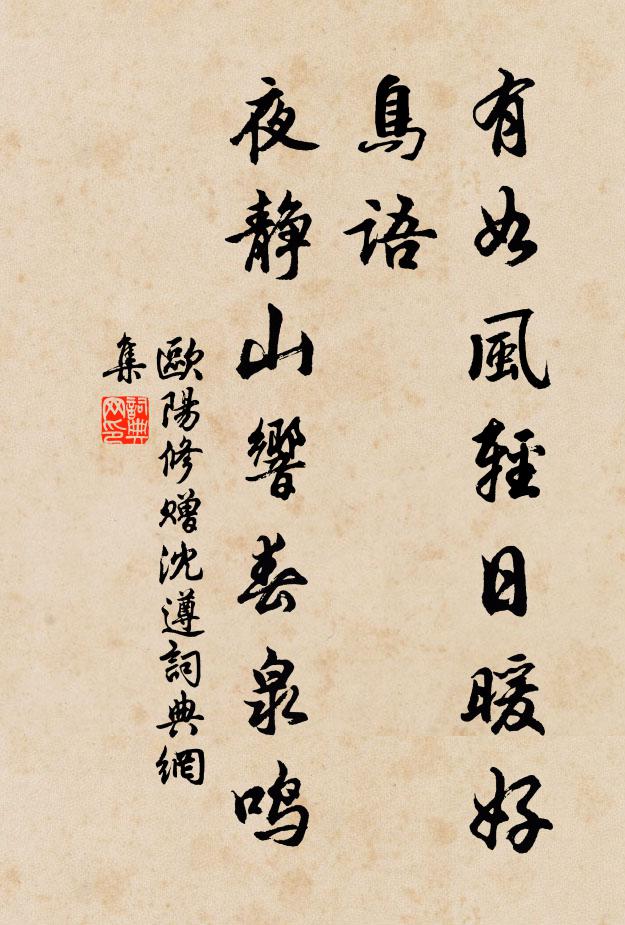 有如風輕日暖好
鳥語
夜靜山響春泉鳴
歐陽修贈沈遵詞典網
集
詞典
网印